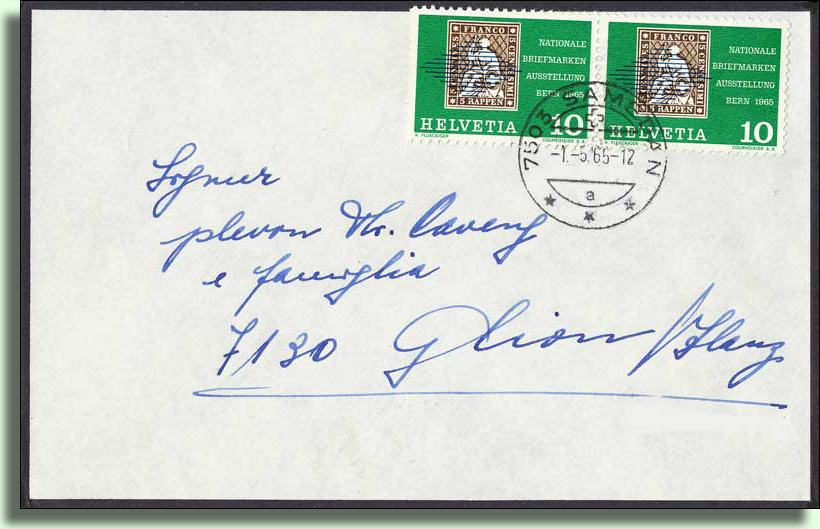 FRANCO
5 CENTESIMI
5 RAPPEN
NATIONALE
BRIEFMARKEN
AUSSTELLUNG
BERN 1965
HELVETIA 10
A. FLUECKIGER COURVOISIER S.A.
FRANCO
5 CENTESIMI
5 RAPPEN
NATIONALE
BRIEFMARKEN
AUSSTELLUNG
BERN 1965
HELVETIA 10
A. FLUECKIGER COURVOISIER S.A.
7503 SAMEDAN
-1.-5.65-12
a
Segneur
plevon Chr. Caveng
e famiglia
7130 Glion/Ilanz